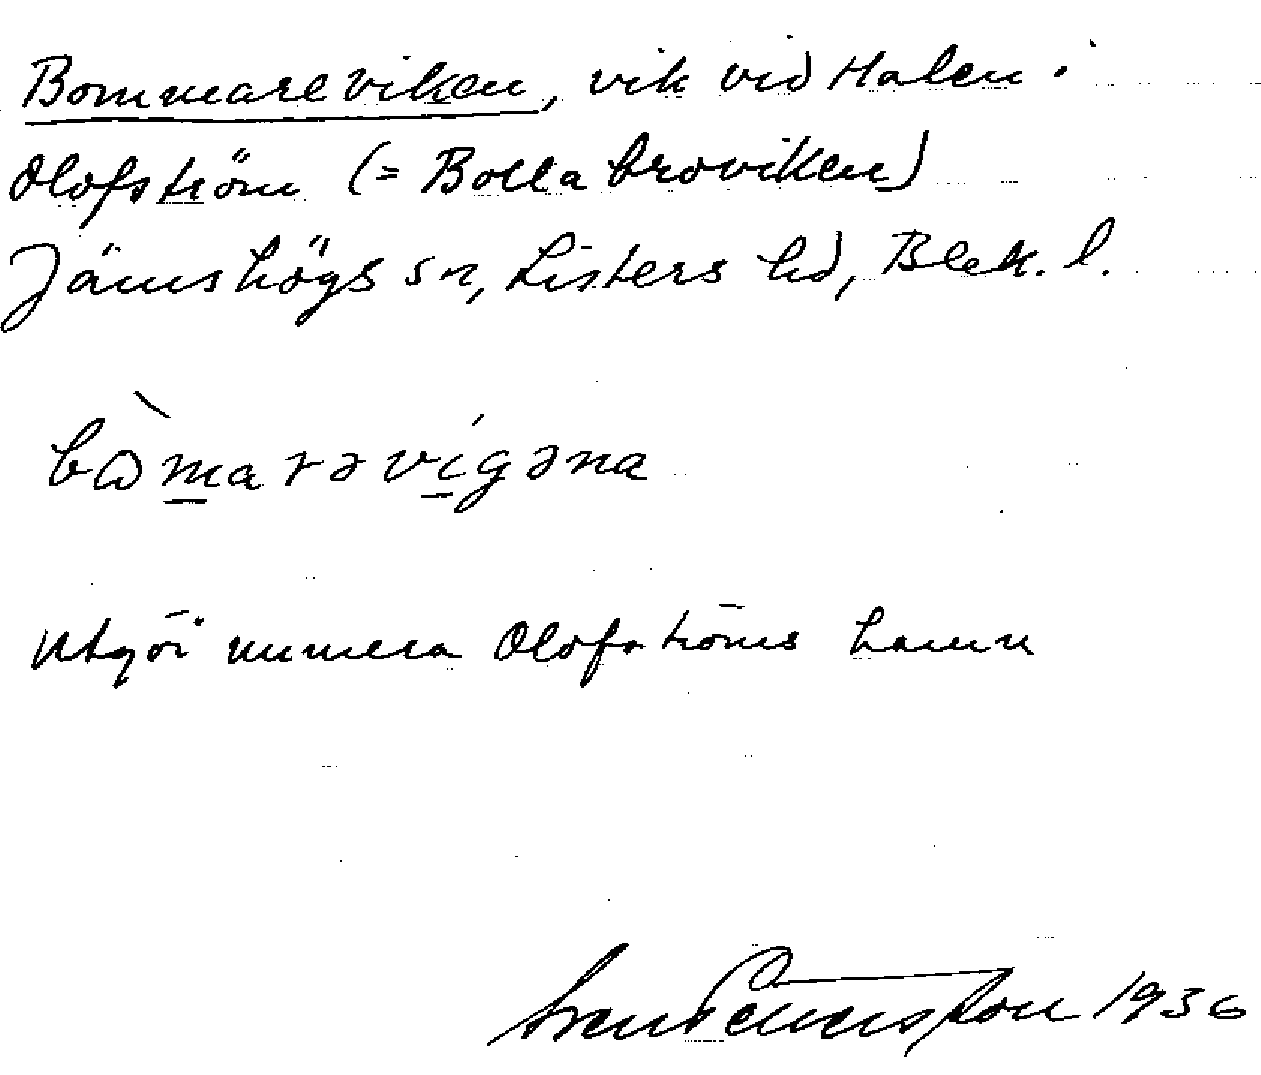 Bommareviken, vik vid Halen i
Olofström (= Bollabroviken)
Jämshögs sn, Listers hd, Blek. l.
bɷ̀maravígəna
utgör numera Olofströms hamn
Sven Benson 1936